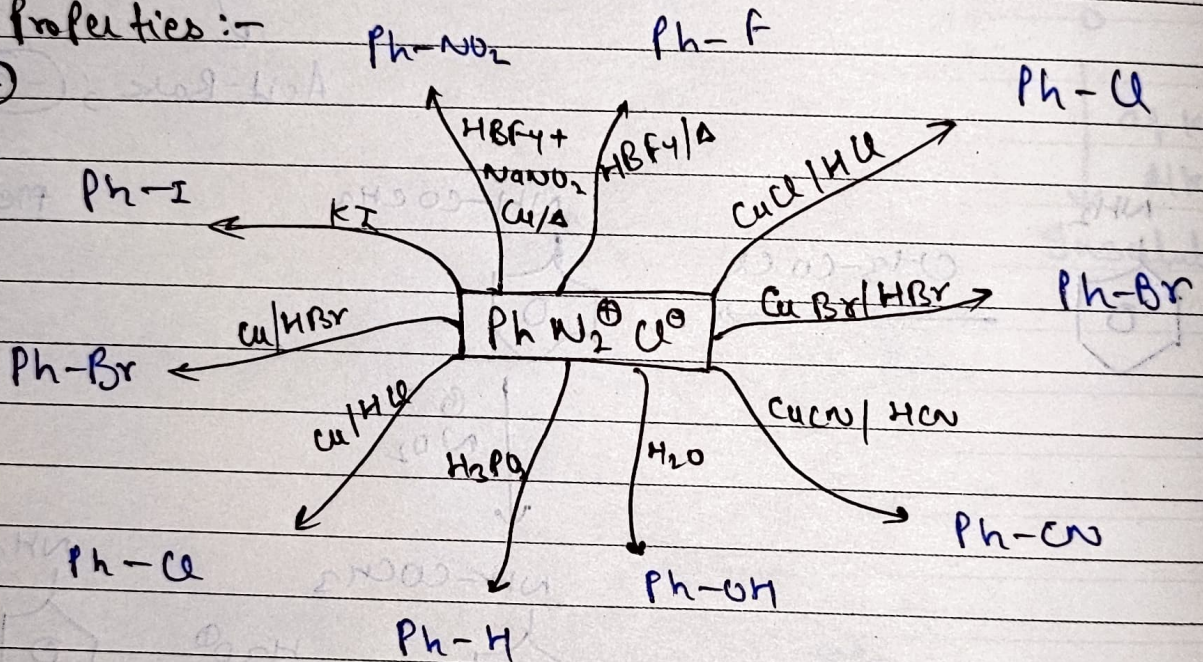 Properties :-
Ph-NO2
Ph-F
Ph-Cl
HBF4+
NaNO2
Cu/Δ
HBF4/Δ
CuCl/HCl
Ph-I
KI
Ph N2⊕ Cl⊖
CuBr/HBr
Ph-Br
Cu/HBr
Ph-Br
Cu/HCl
H3PO2
H2O
CuCN/HCN
Ph-Cl
Ph-H
Ph-OH
Ph-CN